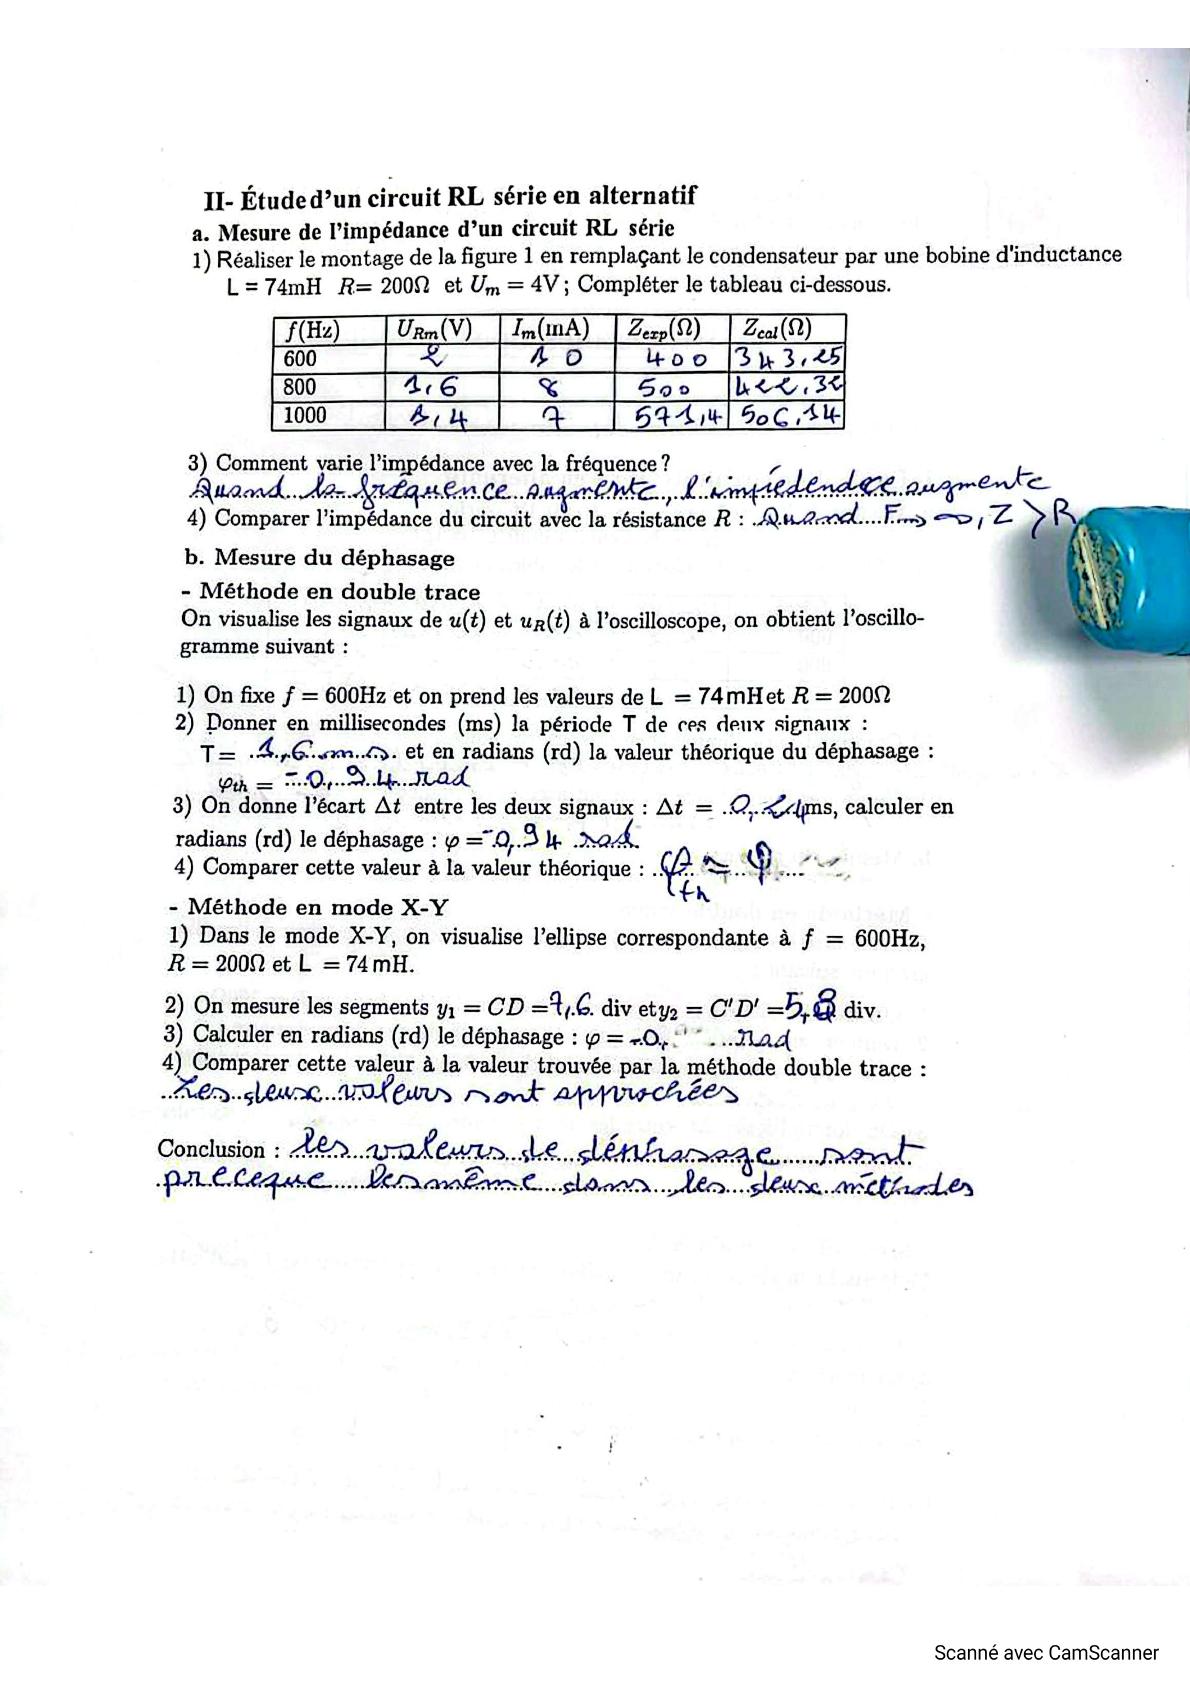 II- Étude d'un circuit RL série en alternatif
a. Mesure de l'impédance d'un circuit RL série
1) Réaliser le montage de la figure 1 en remplaçant le condensateur par une bobine d'inductance
L = 74mH R= 200Ω et Um = 4V ; Compléter le tableau ci-dessous.
f(Hz) URm(V) Im(mA) Zexp(Ω) Zcal(Ω)
600 2 10 400 343,25
800 1,6 8 500 422,32
1000 1,4 7 571,4 506,14
3) Comment varie l'impédance avec la fréquence ?
Quand la fréquence augmente, l'impiédendece augmente
4) Comparer l'impédance du circuit avec la résistance R : Quand F→∞, Z > R
b. Mesure du déphasage
- Méthode en double trace
On visualise les signaux de u(t) et uR(t) à l'oscilloscope, on obtient l'oscillo-
gramme suivant :
1) On fixe f = 600Hz et on prend les valeurs de L = 74mH et R = 200Ω
2) Donner en millisecondes (ms) la période T de ces deux signaux :
T= 1,6 ms. et en radians (rd) la valeur théorique du déphasage :
φth = -0,94 rad
3) On donne l'écart Δt entre les deux signaux : Δt = 0,24ms, calculer en
radians (rd) le déphasage : φ = -0,94 rad.
4) Comparer cette valeur à la valeur théorique : φth ≈ φ
- Méthode en mode X-Y
1) Dans le mode X-Y, on visualise l'ellipse correspondante à f = 600Hz,
R = 200Ω et L = 74 mH.
2) On mesure les segments y1 = CD =7,6 div et y2 = C'D' =5,8 div.
3) Calculer en radians (rd) le déphasage : φ = -0, rad
4) Comparer cette valeur à la valeur trouvée par la méthode double trace :
Les deux valeurs sont approchées
Conclusion : les valeurs de dénhasage sont
preceque les même dans les deux méthodes
Scanné avec CamScanner